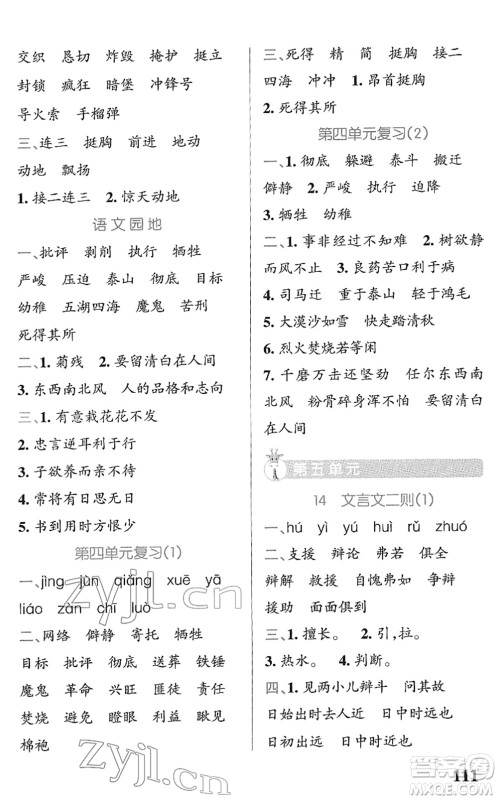 交织 恳切 炸毁 掩护 挺立
封锁 疯狂 暗堡 冲锋号
导火索 手榴弹
三、连三 挺胸 前进 地动
动地 飘扬
1. 接二连三 2. 惊天动地
语文园地
一、批评 剥削 执行 牺牲
严峻 压迫 泰山 彻底 目标
幼稚 五湖四海 魔鬼 苦刑
死得其所
二、1. 菊残 2. 要留清白在人间
3. 东西南北风 人的品格和志向
三、1. 有意栽花花不发
2. 忠言逆耳利于行
3. 子欲养而亲不待
4. 常将有日思无日
5. 书到用时方恨少
第四单元复习(1)
一、jìng jùn qiǎng xuē yā
liáo zàn chī luò
二、网络 僻静 寄托 牺牲
目标 批评 彻底 送葬 铁锤
魔鬼 革命 兴旺 匪徒 责任
焚烧 避免 瞪眼 利益 瞅见
棉袍
三、死得 精 简 挺胸 接二
四海 冲冲 1. 昂首挺胸
2. 死得其所
第四单元复习(2)
一、1. 彻底 躲避 泰斗 搬迁
僻静 2. 严峻 执行 迫降
3. 牺牲 幼稚
二、1. 事非经过不知难 2. 树欲静
而风不止 3. 良药苦口利于病
4. 司马迁 重于泰山 轻于鸿毛
5. 大漠沙如雪 快走踏清秋
6. 烈火焚烧若等闲
7. 千磨万击还坚劲 任尔东西
南北风 粉骨碎身浑不怕 要留清
白在人间
第五单元
14 文言文二则(1)
一、hú yì yú huì rǔ zhuó
二、支援 辩论 弗若 俱全
辩解 援引 自愧弗如 争辩
援助 面面俱到
三、1. 擅长。 2. 引,拉。
3. 热水。 4. 判断。
四、1. 见两小儿辩斗 问其故
日始出时近 日中时远
日初出远 日中时近
111
zyjl.cn
zyjl.cn
答案圈
MXQE.COM